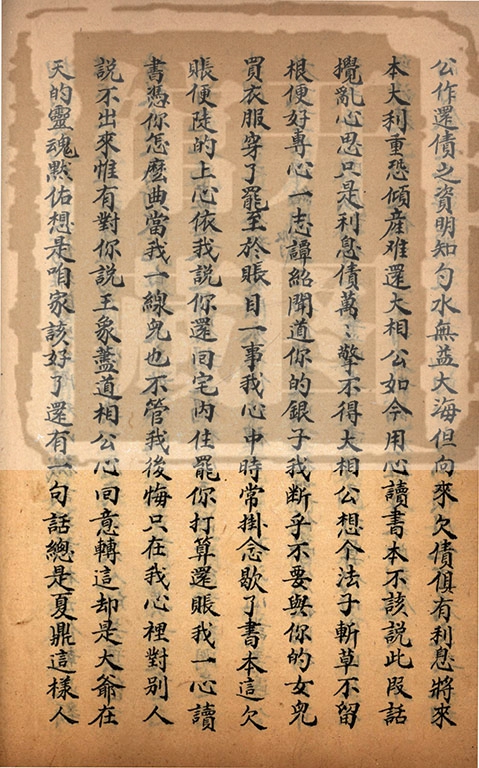 公作還債之資明知勺水無益大海但向來欠債俱有利息將來
本大利重恐傾産难還大相公如今用心讀書本不該說此段話
攪亂心思只是利息債萬〻擎不得大相公想个法子斬草不留
根便好專心一志譚紹聞道你的銀子我断乎不要與你的女兒
買衣服穿了罷至於賬目一事我心中時常掛念歇了書本這欠
賬便陡的上心依我說你還回宅內住罷你打算還賬我一心讀
書憑你怎麽曲當我一線兒也不管我後悔只在我心裡對别人
說不出來惟有對你說王象藎道相公心回意轉這却是大爺在
天的靈魂黙佑想是咱家該好了還有一句話總是夏鼎這樣人